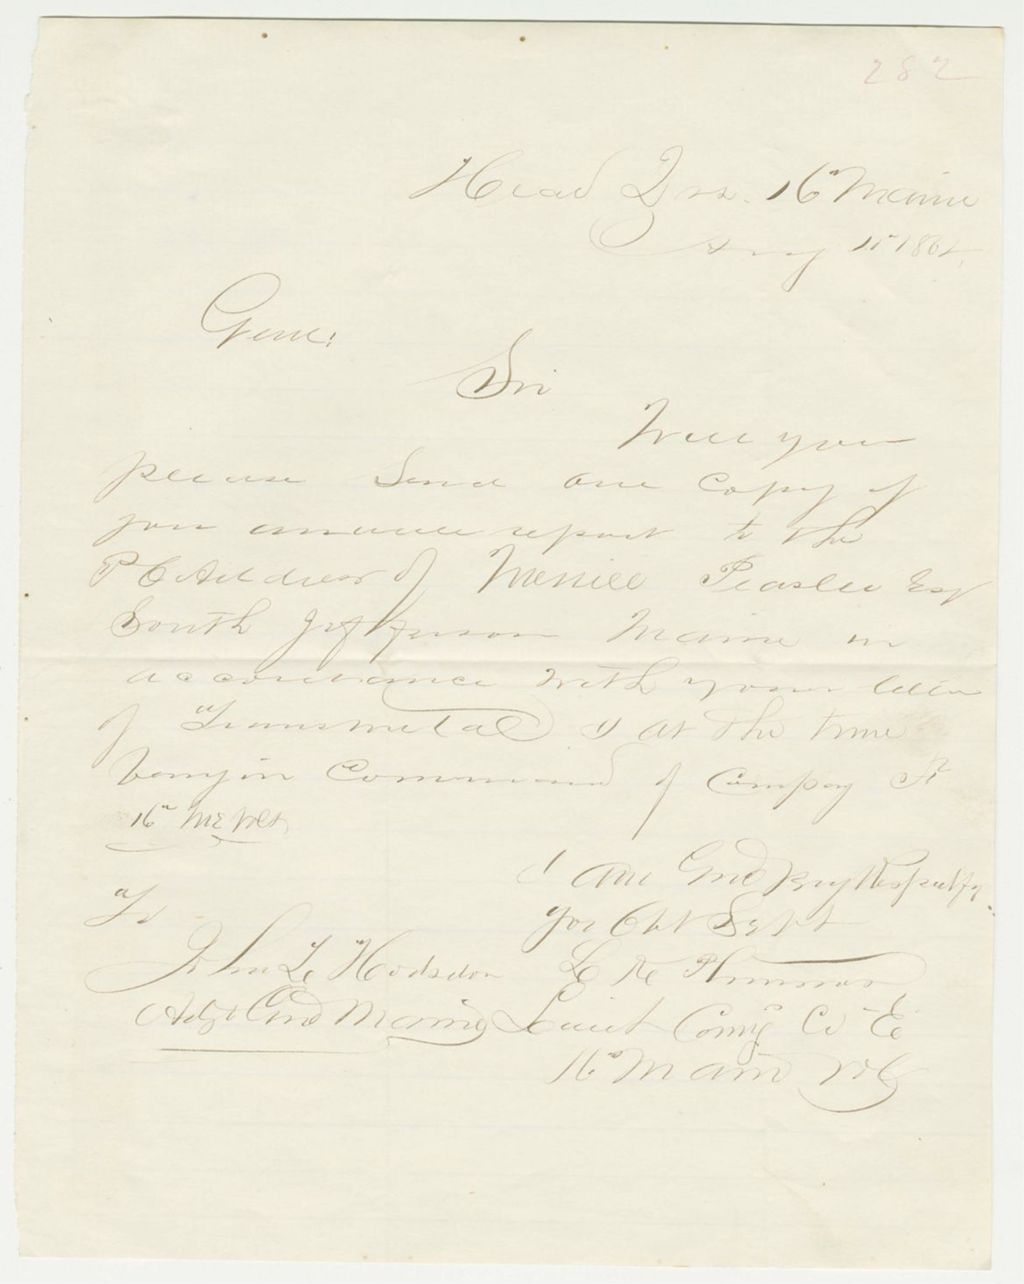 282
Head Qrs. 16" Maine
Aug 11" 1864
Genl:
Sir
Will you
please Send one Copy of
your annual report to the
P O Address of Merrill Peaslee Esq
South Jefferson Maine in
accordance with your letter
of Transmetal I at the time
being in Command of Compay
16" Me Vols
I am Genl Very Respectfly
your Obt Servt
To
John L Hodsdon
Adjt Genl Maine
L Plummer
Lieut Comg Co E
16" Maine Vols